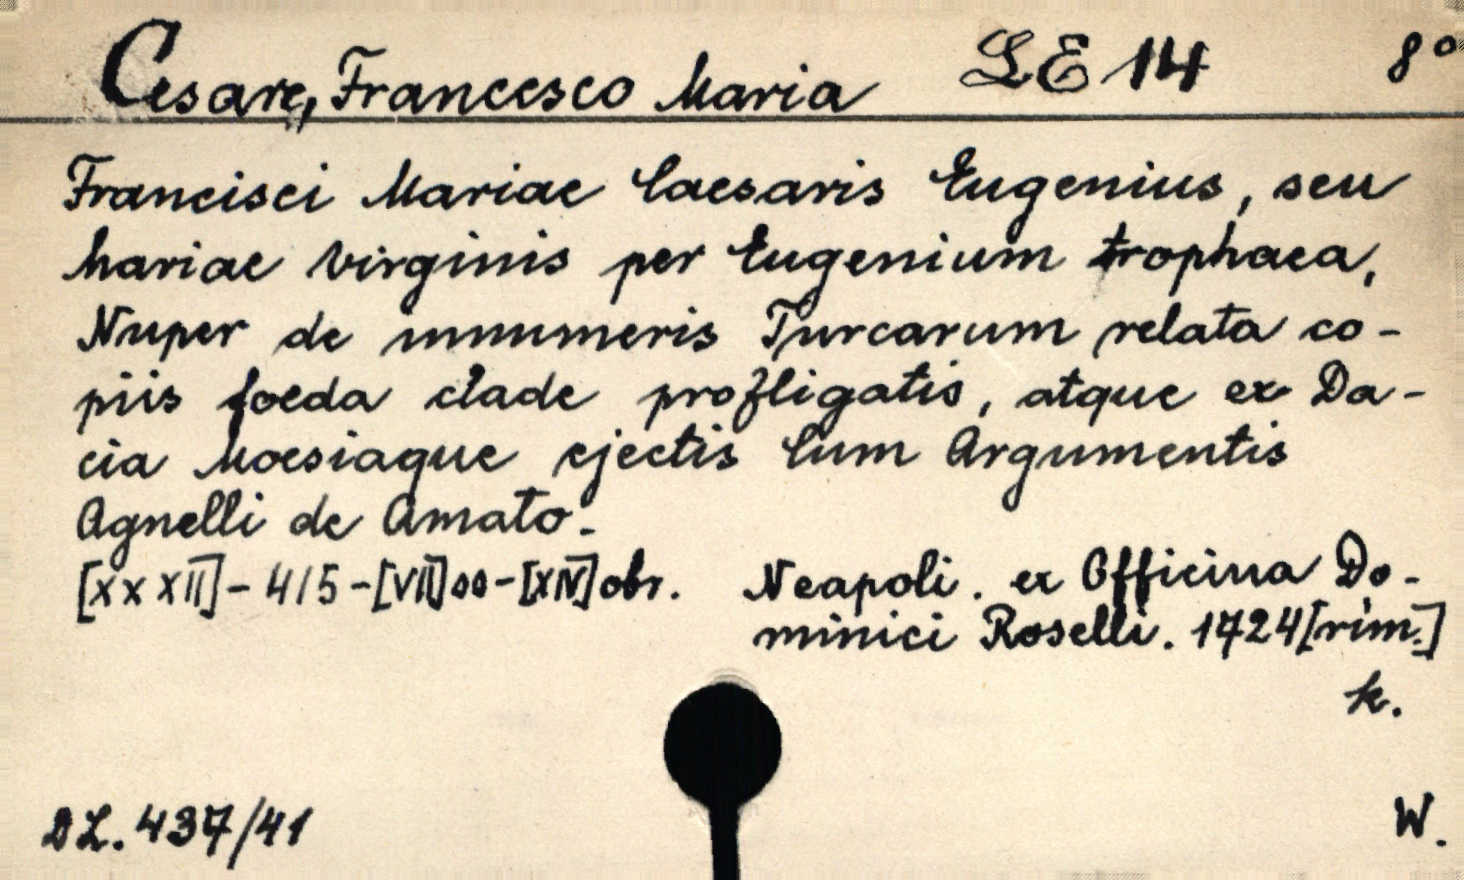 Cesare, Francesco Maria LE 14 8°
Francisci Mariae Caesaris Eugenius, seu
Mariae Virginis per Eugenium trophaea,
Nuper de innumeris Turcarum relata co-
piis foeda clade profligatis, atque ex Da-
cia Moesiaque ejectis Cum Argumentis
Agnelli de Amato.
[XXXII]-415-[VII]∞-[XIV]obr. Neapoli. ex Officina Do-
minici Roselli. 1724[rim.]
k.
DL. 437/41 W.